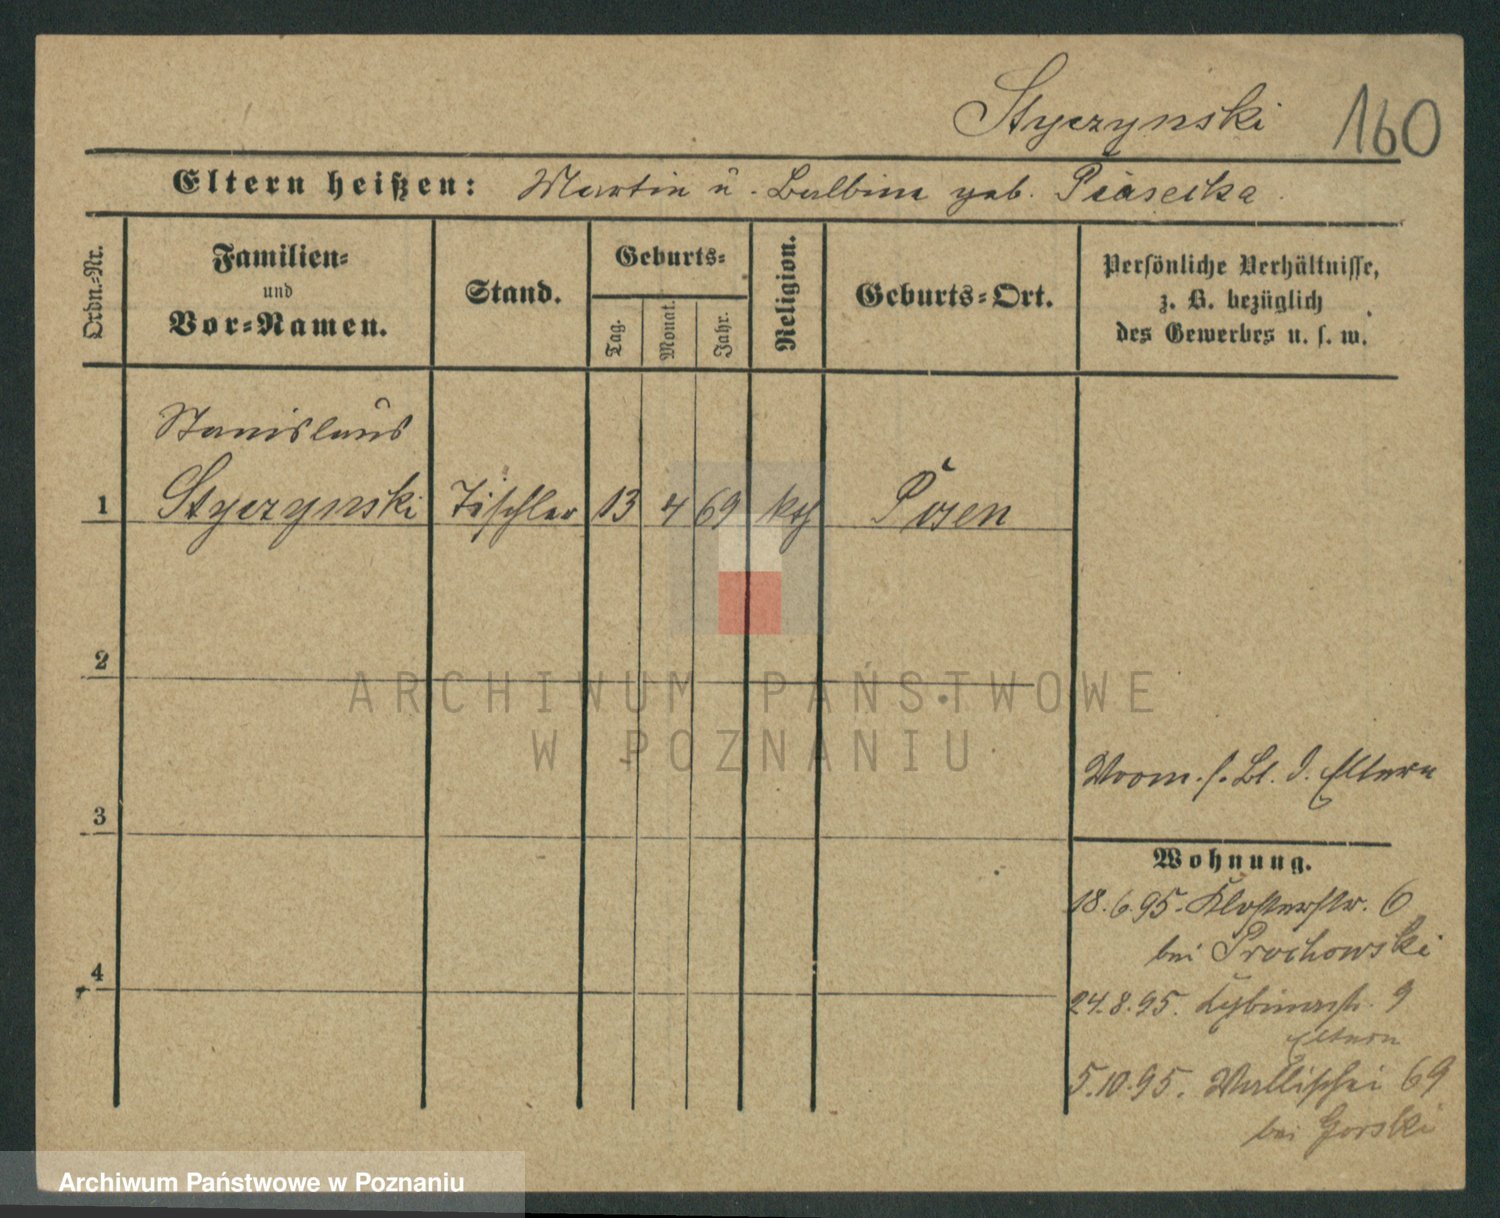 Styczynski 160
Eltern heißen: Martin u. Balbina geb. Piasecka
Ordn.-Nr.
Familien-
und
Vor-Namen.
Stand.
Geburts-
Tag.
Monat.
Jahr.
Religion.
Geburts-Ort.
Persönliche Verhältnisse,
z. B. bezüglich
des Gewerbes u. s. w.
Stanislaus
1 Styczynski Tischler 13 4 69 kth Posen
2
ARCHIWUM PAŃSTWOWE
W POZNANIU
Bl. d. Eltern
3
Wohnung.
18.6.95. Klosterstr. 6
bei Prochowski
4
24.8.95. 9
Eltern
5.10.95. Wallischei 69
bei Gorski
Archiwum Państwowe w Poznaniu